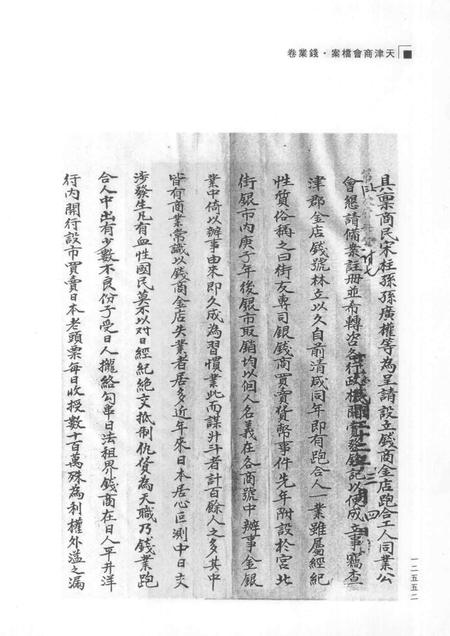 天津商會檔案·錢業卷
具稟商民宋柱孫孫廣權等為呈請設立錢商金店跑合工人同業公
會懇請備案註冊並布轉咨各行政機關實發登記以便成立事竊查
津郡金店錢號林立以久自前清咸同年即有跑合人一業雖屬經紀
性質俗稱之曰街友專司銀錢商買賣貨幣事件先年附設於宮北
街銀市內庚子年後銀市取銷均以個人名義在各商號中辦事金銀
業中倚以辦事由來即久成為習慣業此而謀升斗者計百餘人之多其中
皆有商業常識以錢商金店失業者居多近年來日本居心叵測中日交
涉發生凡有血性國民莫不以對日經紀絕交抵制仇貨為天職乃錢業跑
合人中出有少數不良份子受日人攏絡勾串日法租界錢商在日人平井洋
行內開行設市買賣日本老頭票每日收授數十百萬殊為利權外溢之漏
一二五五二